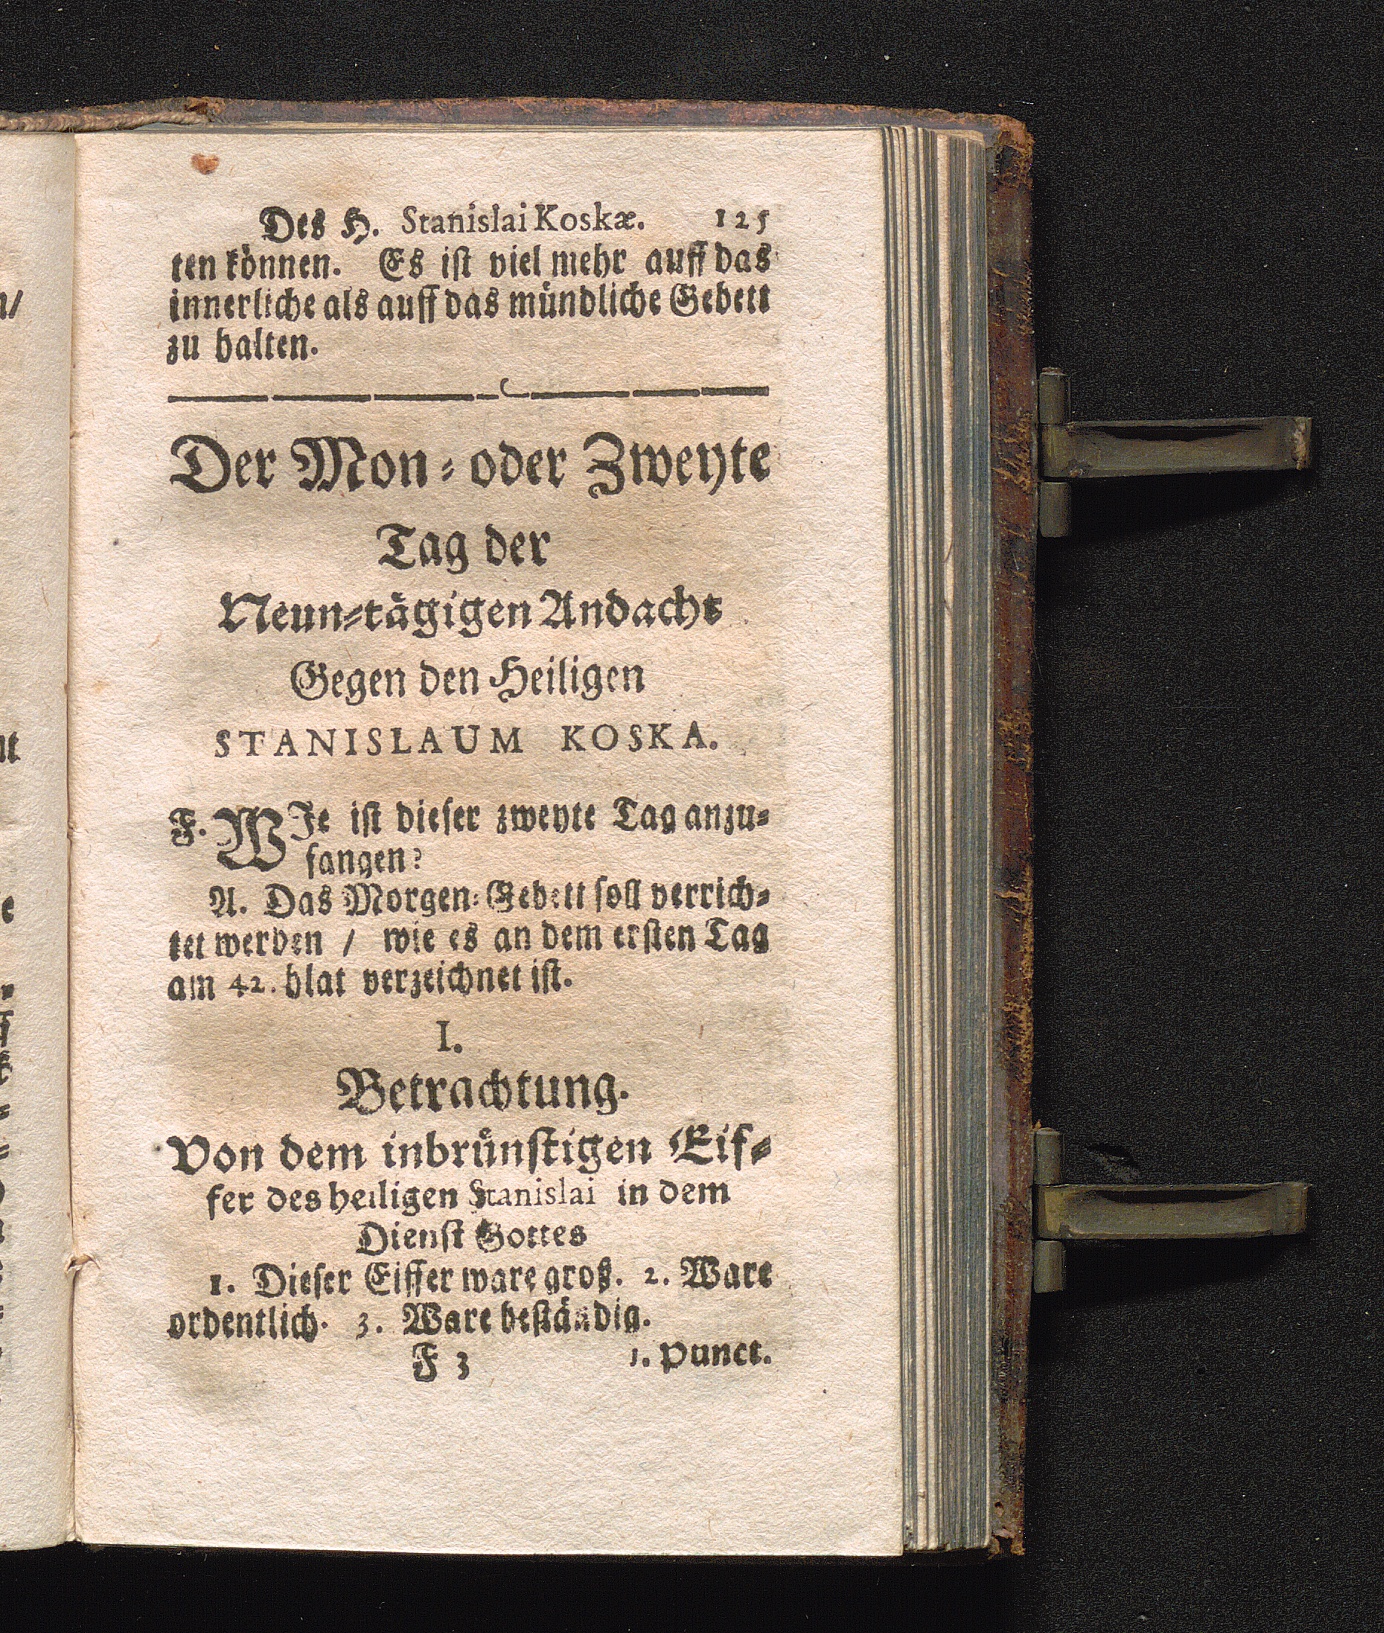 Des H. Stanislai Koskæ. 125
ten können. Es ist viel mehr auff das
innerliche als auff das mündliche Gebett
zu halten.
Der Mon- oder Zweyte
Tag der
Neun-tägigen Andacht
Gegen den Heiligen
STANISLAUM KOSKA.
F. WIe ist dieser zweyte Tag anzu-
fangen?
A. Das Morgen-Gebett soll verrich-
tet werden / wie es an dem ersten Tag
am 42. blat verzeichnet ist.
I.
Betrachtung.
Von dem inbrünstigen Eif-
fer des heiligen Stanislai in dem
Dienst Gottes
1. Dieser Eiffer ware groß. 2. Ware
ordentlich. 3. Ware beständig.
F 3 1. Punct.